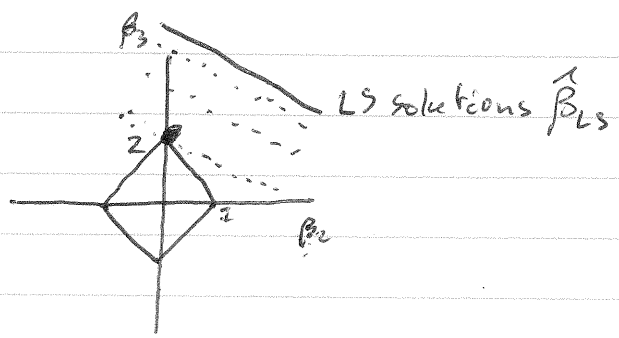 β₃
LS solutions β̂_LS
2
1
β₂